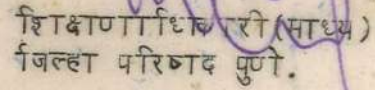 शिक्षाणााधिकारी (साध्यम)
जिल्हा परिषद पुणे.